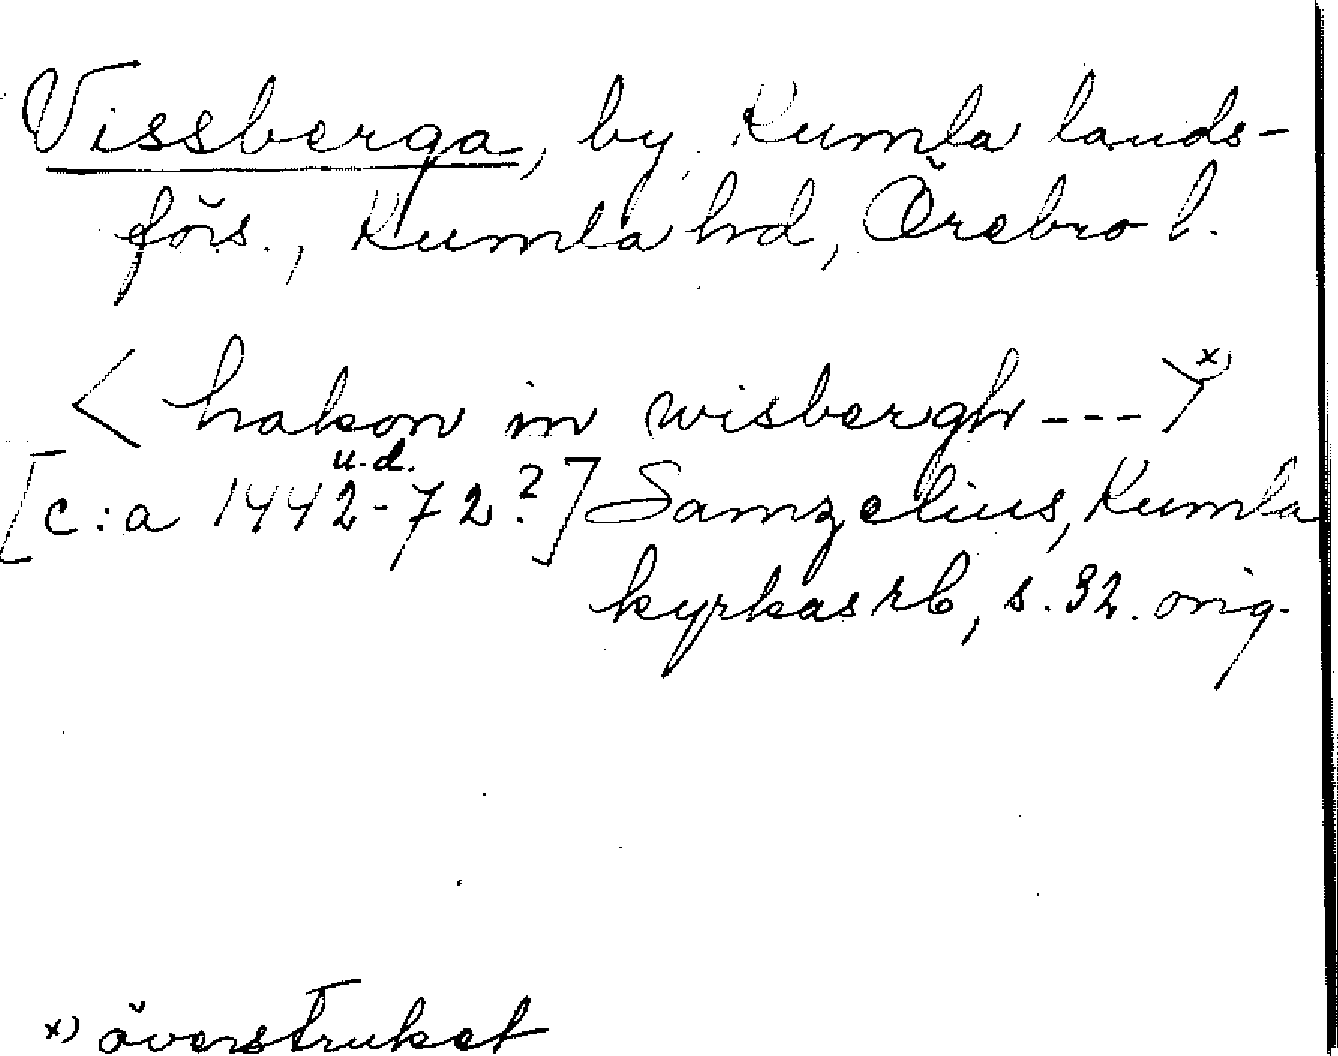 Vissberga, by, Kumla lands-
förs., Kumla hd, Örebro l.
< hakon in wisbergh --- >x)
u.d.
[c:a 1442-72?] Samzelius, Kumla
kyrkas rb, s. 32. orig.
x) överstruket